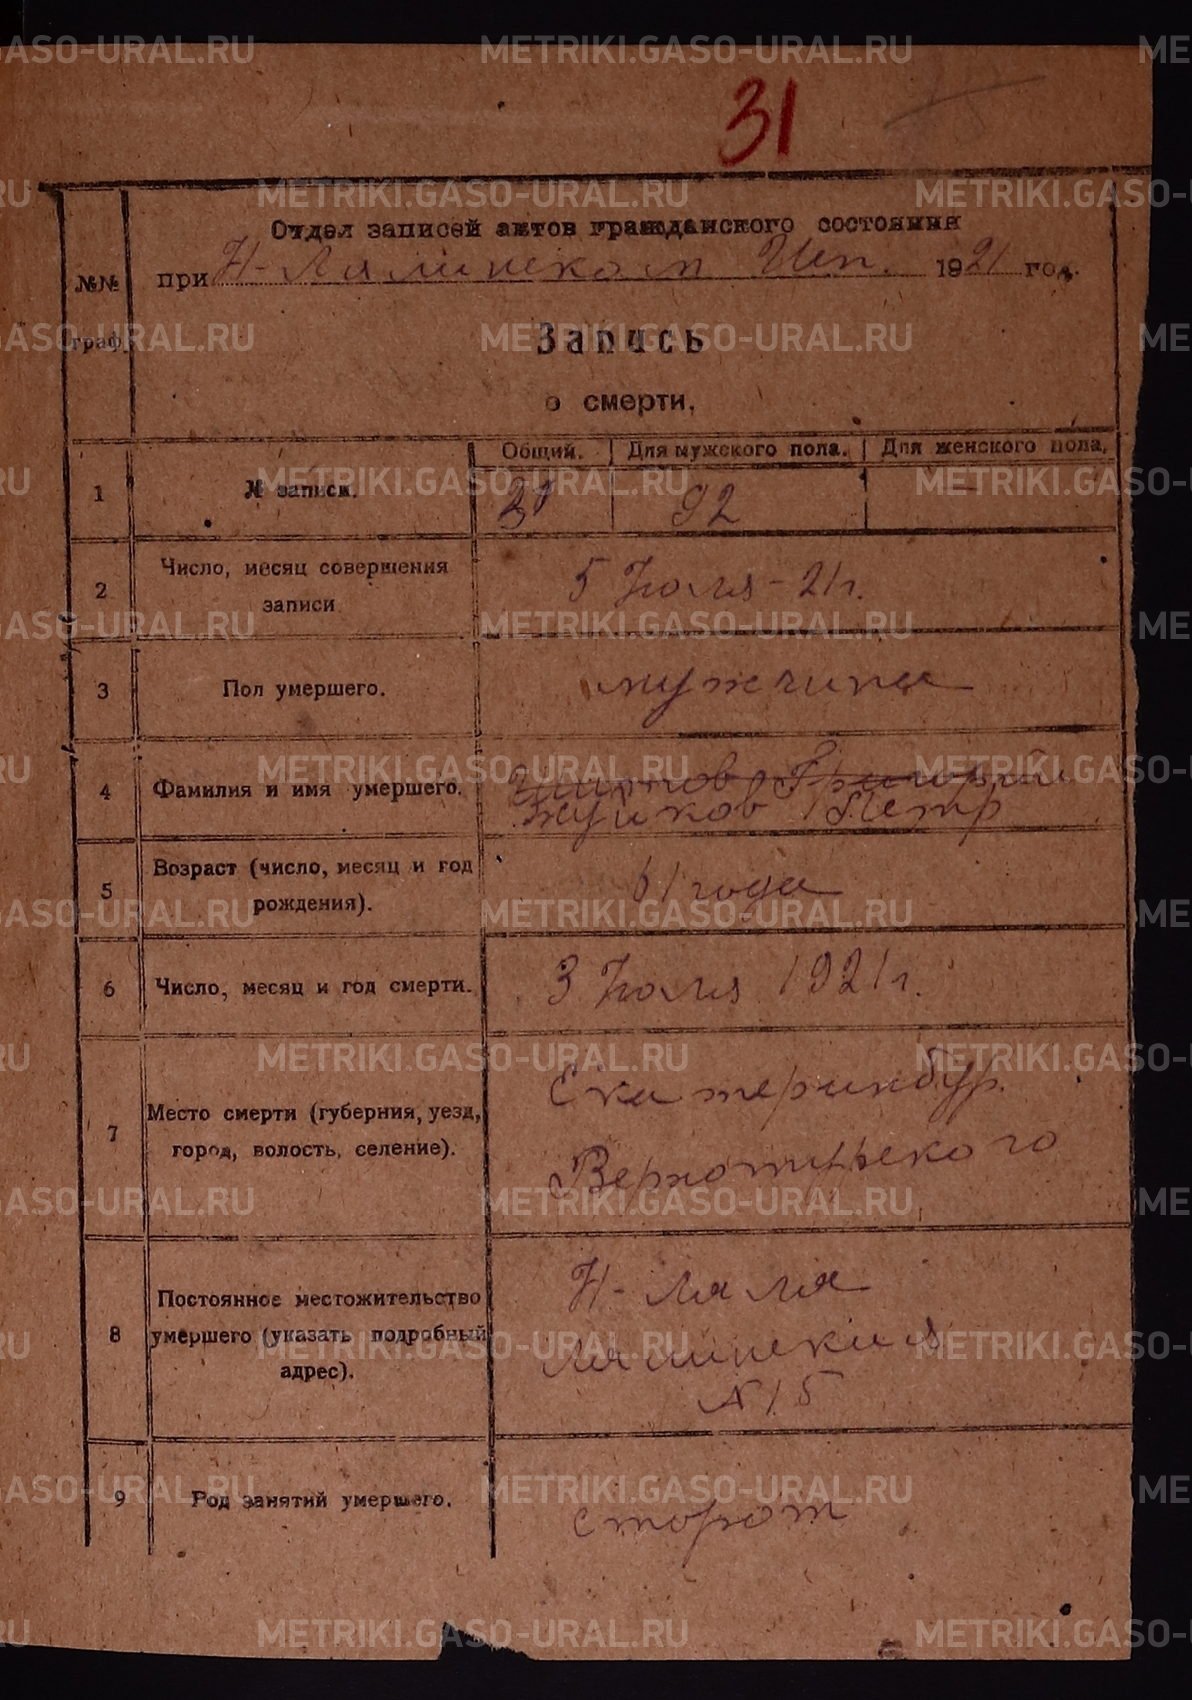 31
Отдел записей актов гражданского состояния
при Н-Лялинском Исп. 1921 год.
№№ граф.
Запись
о смерти.
Общий. Для мужского пола. Для женского пола.
1 № записи. 92 —
2 Число, месяц совершения записи 5 Іюля - 21 г.
3 Пол умершего. мужчина
4 Фамилия и имя умершего. Григорий
Петр
5 Возраст (число, месяц и год рождения). 61 года
6 Число, месяц и год смерти. 3 Іюля 1921 г.
7 Место смерти (губерния, уезд, город, волость, селение). Екатеринбур.
Верхотурского
8 Постоянное местожительство умершего (указать подробный адрес). Н-Ляля
Лялинския
№ 15
9 Род занятий умершего. сторож
METRIKI.GASO-URAL.RU